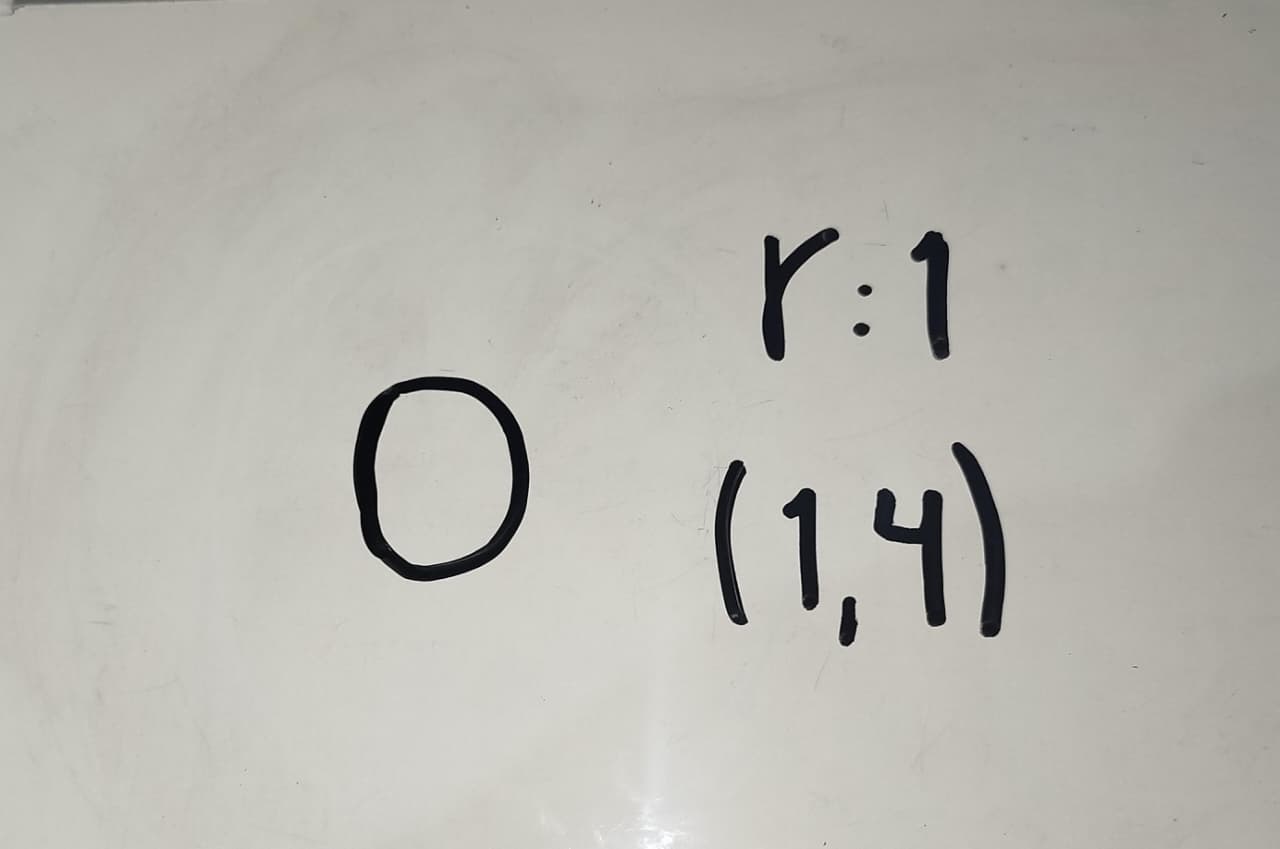 r:1
(1,4)